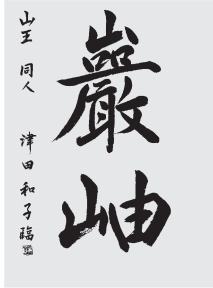 巖岫
山王 同人 津田和子臨